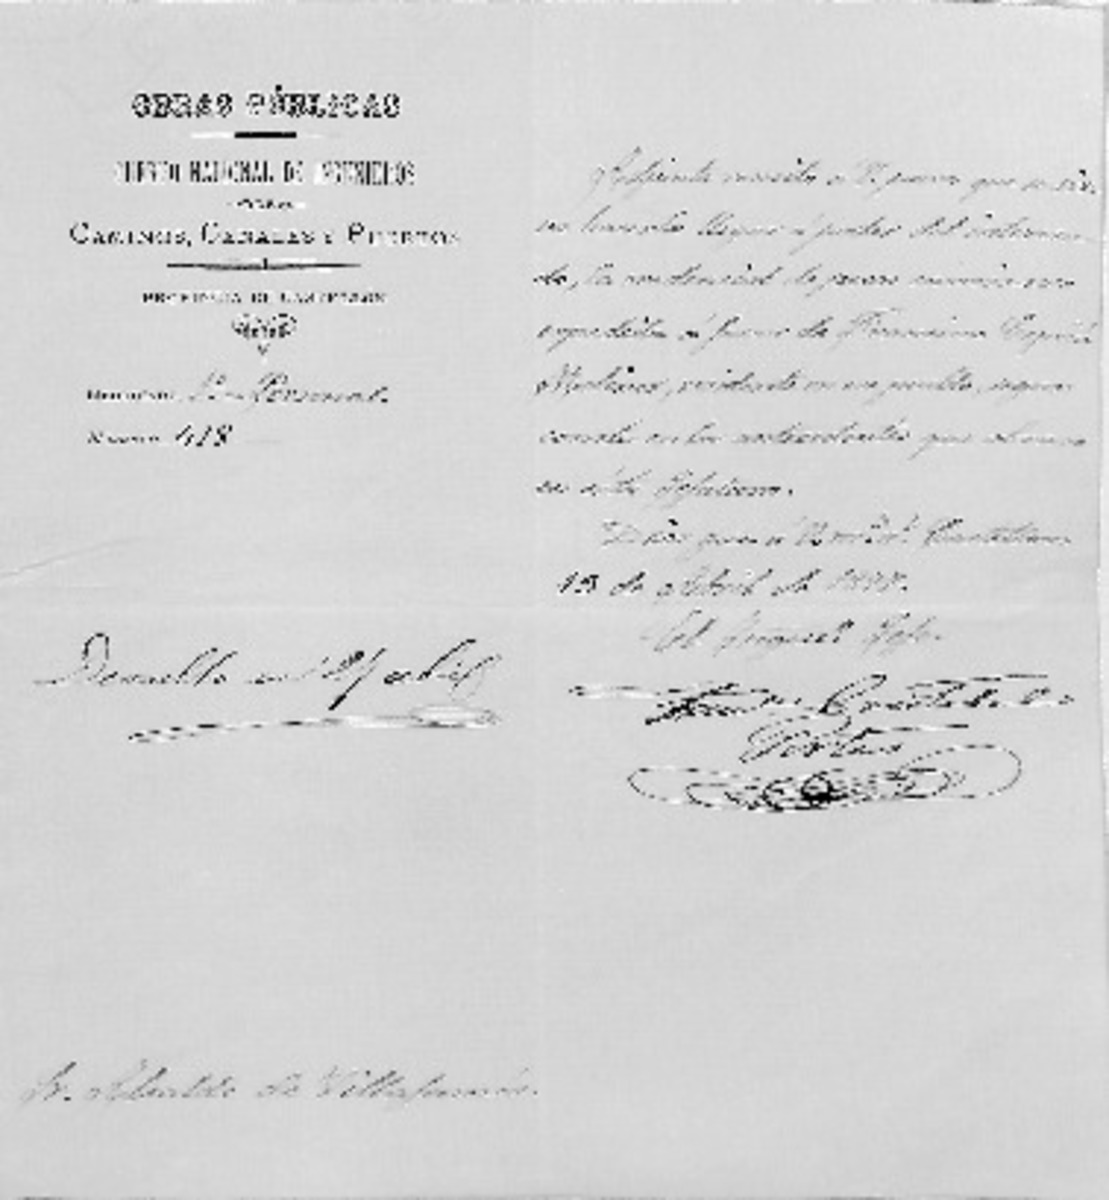 OBRAS PÚBLICAS
CUERPO NACIONAL DE INGENIEROS
DE
CAMINOS, CANALES Y PUERTOS
PROVINCIA DE CASTELLON
Negociado Personal.
Número 418
Adjunta remito a V. para que se sir-
va hacerla llegar á poder del interesa-
do, la credencial de peon
expedida á favor de Francisco
residente en ese pueblo, segun
consta en los antecedentes que obran
en esta Jefatura.
Dios gue á V. m. a. Castellon
13 de Abril de
El Ingen.º Jefe.
Devuelto en 21 abril
Sr. Alcalde de Villafamés.